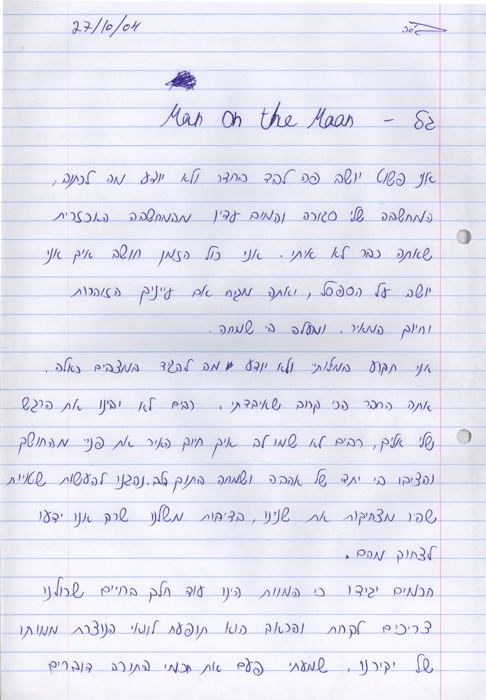 27/10/04
בס"ד
גל - Man on the Moon
אני פשוט יושב פה לבד בחדר ולא יודע מה לכתוב,
המחשבה שלי סגורה והמום עדיין מהמחשבה האכזרית
שאתה כבר לא איתי. אני כול הזמן חושב איך אני
יושב על הספסל, ואתה מגיח עם עייניים הזוהרות
וחיוך המאיר. ומעלה בי שמחה.
אני תקוע במילותיי ולא יודע מה להגיד במצבים כאלה.
אתה החבר הכי קרוב שאיבדתי. רבים לא יבינו את הרגש
שלי אליך, רבים לא שמו לב איך חיוך האיר את פניי מהחושך
והציבו בי יתד של אהבה ושמחה בתוך הלב. נהגנו להעשות שטויות
שהיו מצחיקות את שנינו, בדיחות משלנו שרק אנו ידענו
לצחוק מהם.
חכמים יגידו כי המוות הינו עוד חלק בחיים שכולנו
צריכים לקחת והכאב הוא תופעת לוואי הנוצרת ממותו
של יקירנו, שמעתי פעם את חכמי התורה דוברים